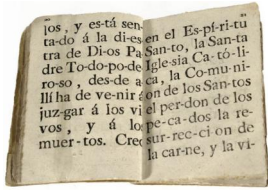 los, y es-tá sen-
ta-do á la di-es-
tra de Di-os Pa-
dre To-do-po-de-
ro-so, des-de a-
llí ha de ve-nir á
juz-gar á los vi-
vos, y á los
muer-tos. Creo
en el Es-pí-ri-tu
San-to, la San-ta
Igle-sia Ca-tó-li-
ca, la Co-mu-ni-
on de los San-tos
el per-don de los
pe-ca-dos la re-
sur-rec-ci on de
la car-ne, y la vi-